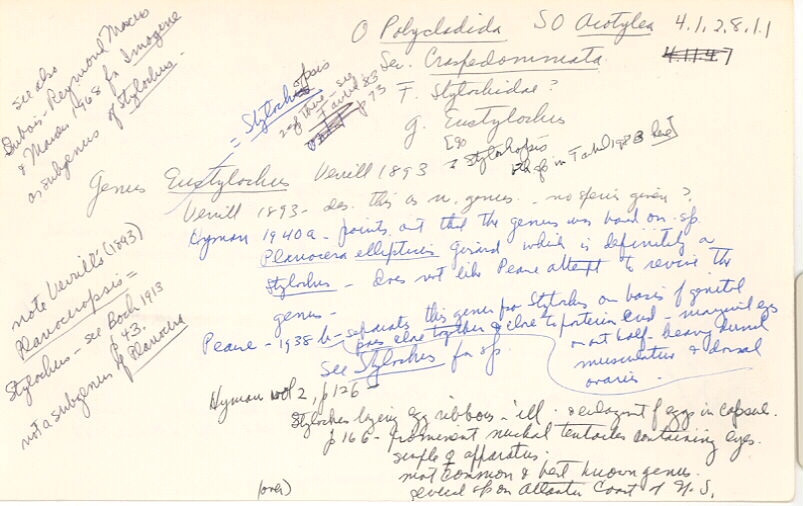 O Polycladida SO Acotylea 4.1.2.8.1.1
4.11.4.7
Sec. Craspedommata
F. Stylochidae?
G. Eustylochus
= Stylochopsis
2 of these - see
p 73
[go
→ Stylochopsis
see also
Dubois-Reymond Marcus
& Marcus 1968 for Imogene
as subgenus of Stylochus.
Genus Eustylochus Verrill 1893
Verrill 1893 - des. this as n. genus - no species given?
Hyman 1940a - points out that the genus was based on sp.
Planocera elliptica Girard which is definitely a
Stylochus - Does not like Pearse attempt to revive the
genus -
Pearse - 1938 b - separates this genus from Stylochus on basis of genital
pores close together & close to posterior end - marginal eyes
on ant half - heavy dermal
musculature & dorsal
ovaries.
See Stylochus for sp.
note Verrill's (1893)
Planoceropsis =
Stylochus - see Bock 1913
p 43.
not a subgenus of Planocera
Hyman vol 2, p 126 -
Stylochus laying egg ribbons - ill. & enlargement of eggs in capsule.
p 166 - prominent nuchal tentacles containing eyes.
simple ♀ apparatus.
most common & best known genus.
several sp on Atlantic Coast of U.S.
(over)